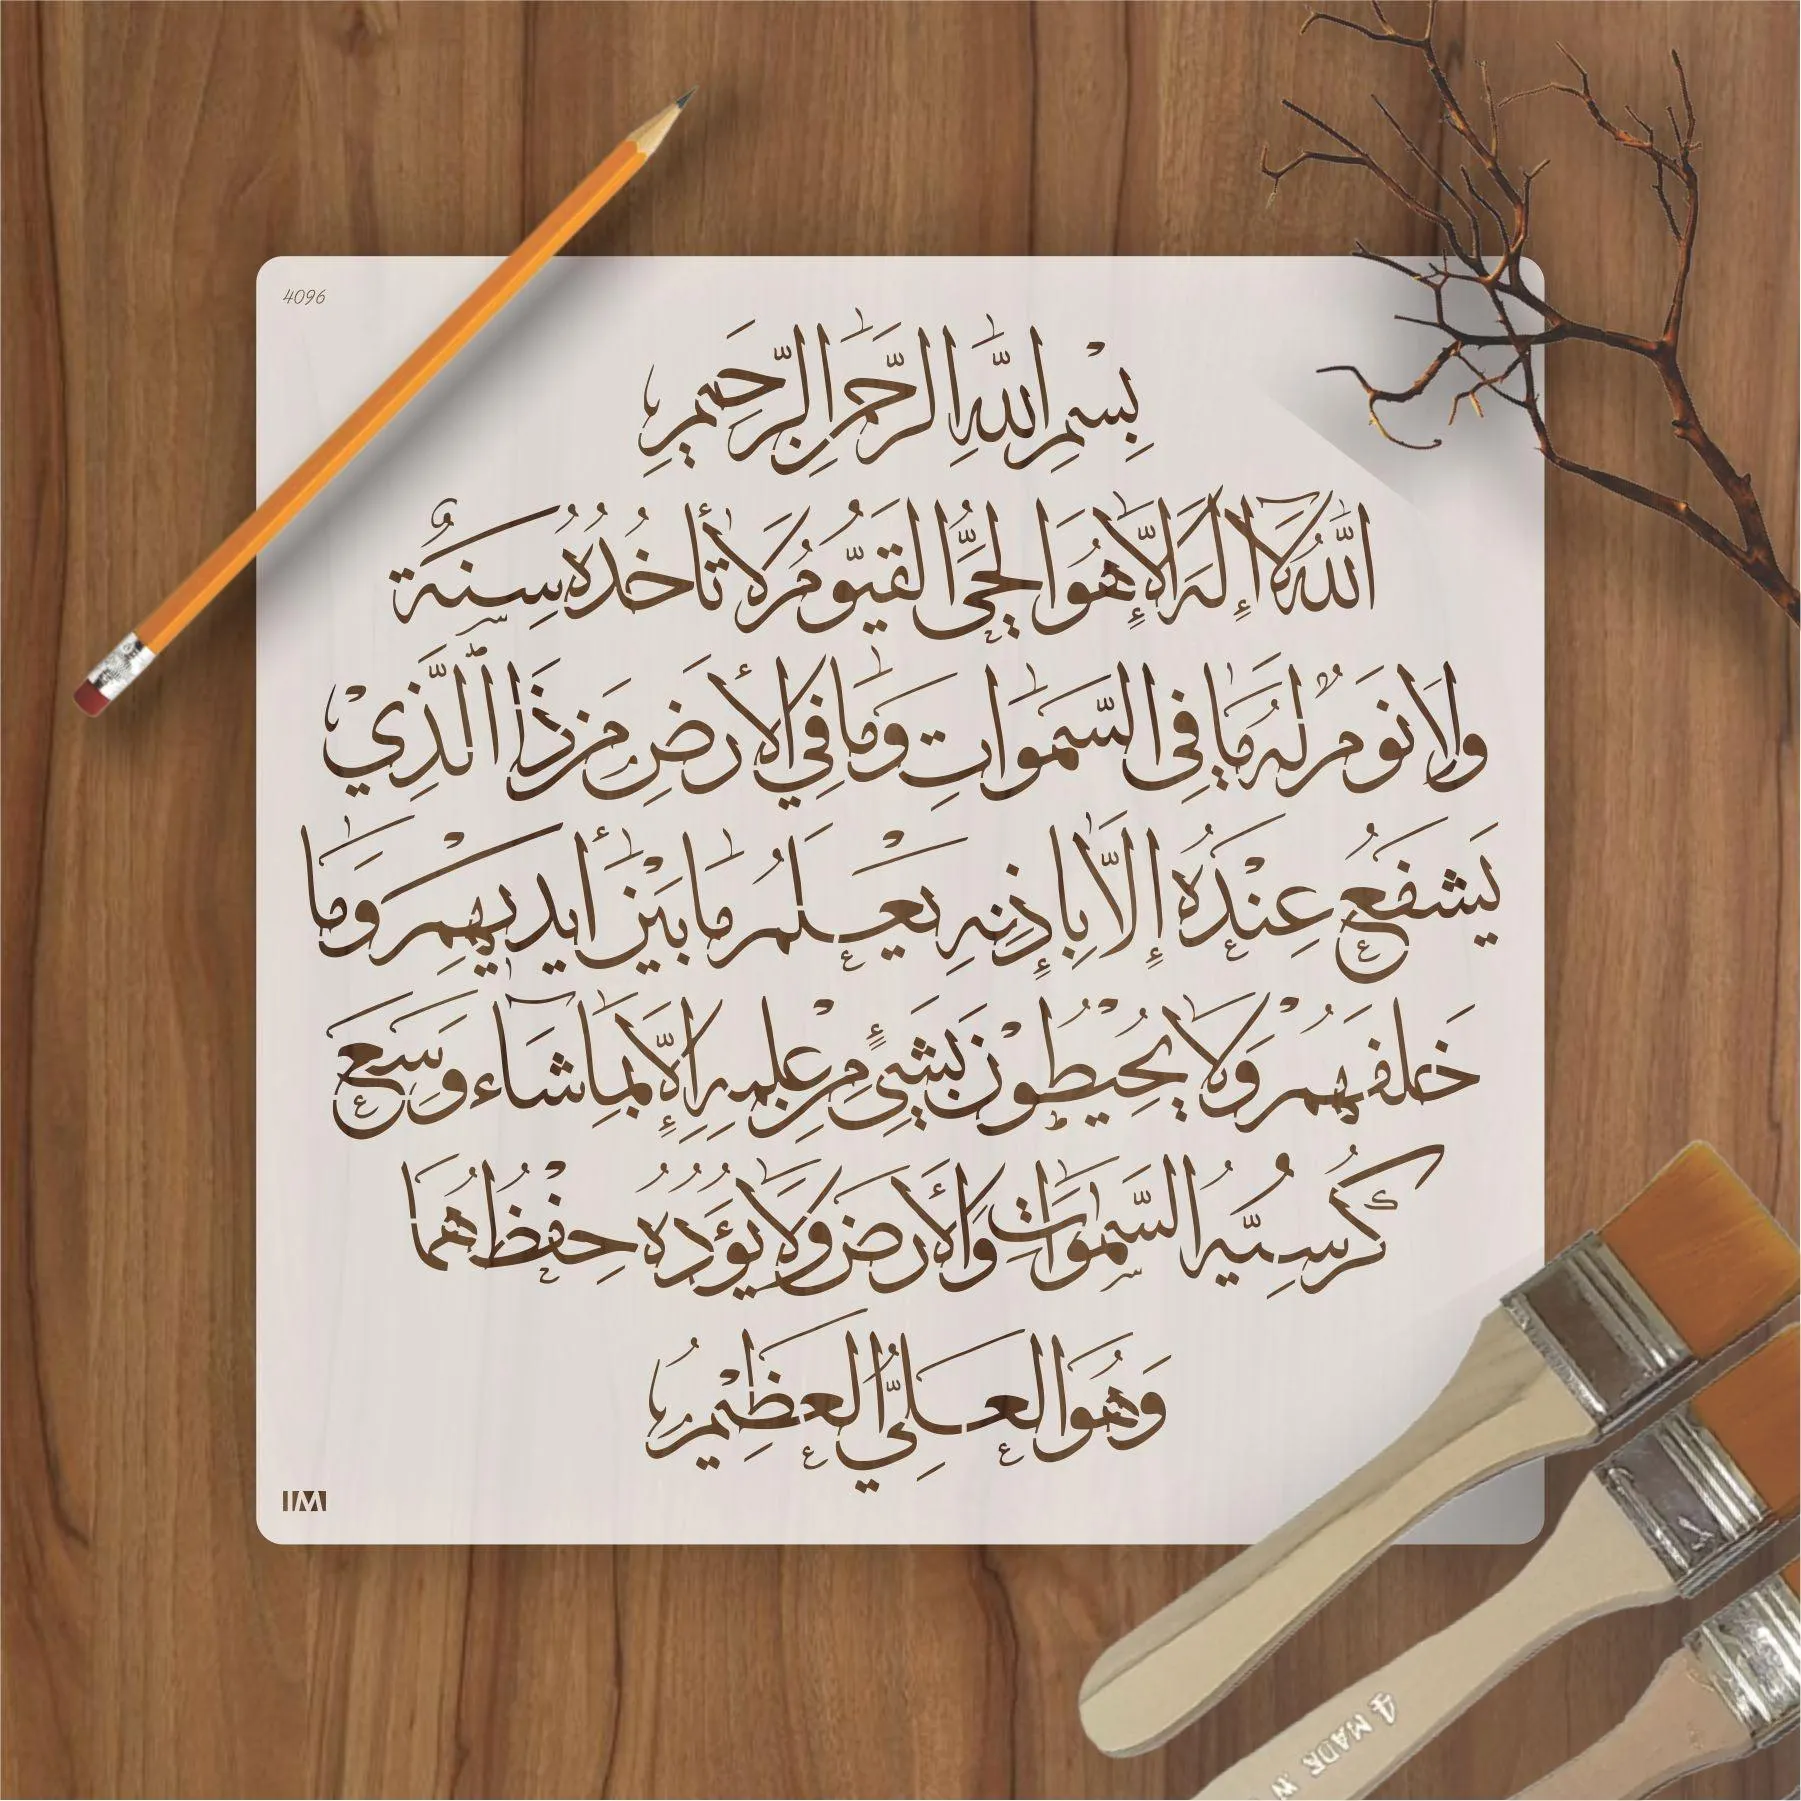 4096
بِسْمِ اللهِ الرَّحْمٰنِ الرَّحِيمِ
اللهُ لَآ إِلٰهَ إِلَّا هُوَ الْحَيُّ الْقَيُّومُ لَا تَأْخُذُهُ سِنَةٌ
وَلَا نَوْمٌ لَهُ مَا فِي السَّمٰوَاتِ وَمَا فِي الْأَرْضِ مَنْ ذَا الَّذِيْ
يَشْفَعُ عِنْدَهُ إِلَّا بِإِذْنِهِ يَعْلَمُ مَا بَيْنَ أَيْدِيهِمْ وَمَا
خَلْفَهُمْ وَلَا يُحِيْطُوْنَ بِشَيْءٍ مِنْ عِلْمِهِ إِلَّا بِمَا شَآءَ وَسِعَ
كُرْسِيُّهُ السَّمٰوَاتِ وَالْأَرْضَ وَلَا يَؤُدُهُ حِفْظُهُمَا
وَهُوَ الْعَلِيُّ الْعَظِيْمُ
IM
4 MADE W